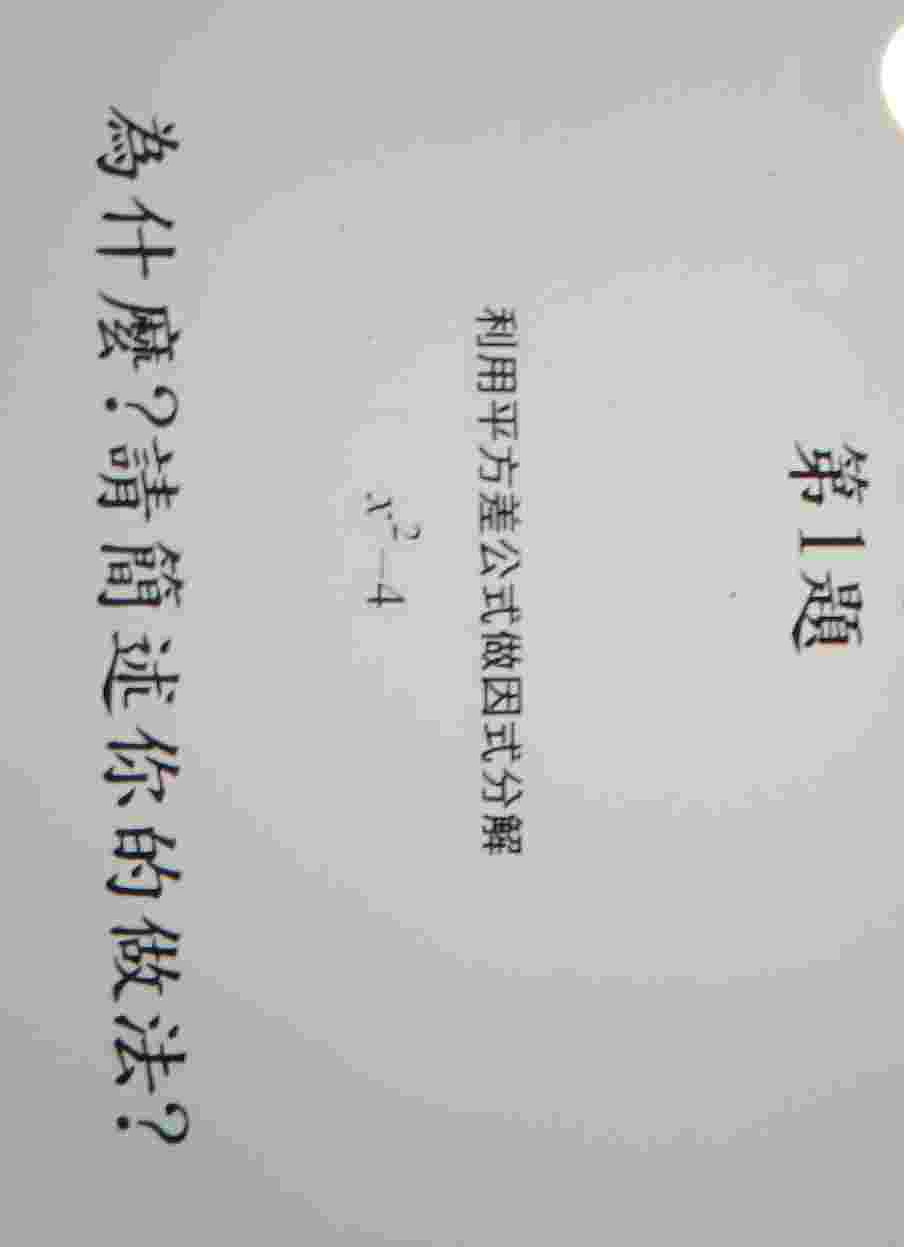 第1題
利用平方差公式做因式分解
x²–4
為什麼?請簡述你的做法?